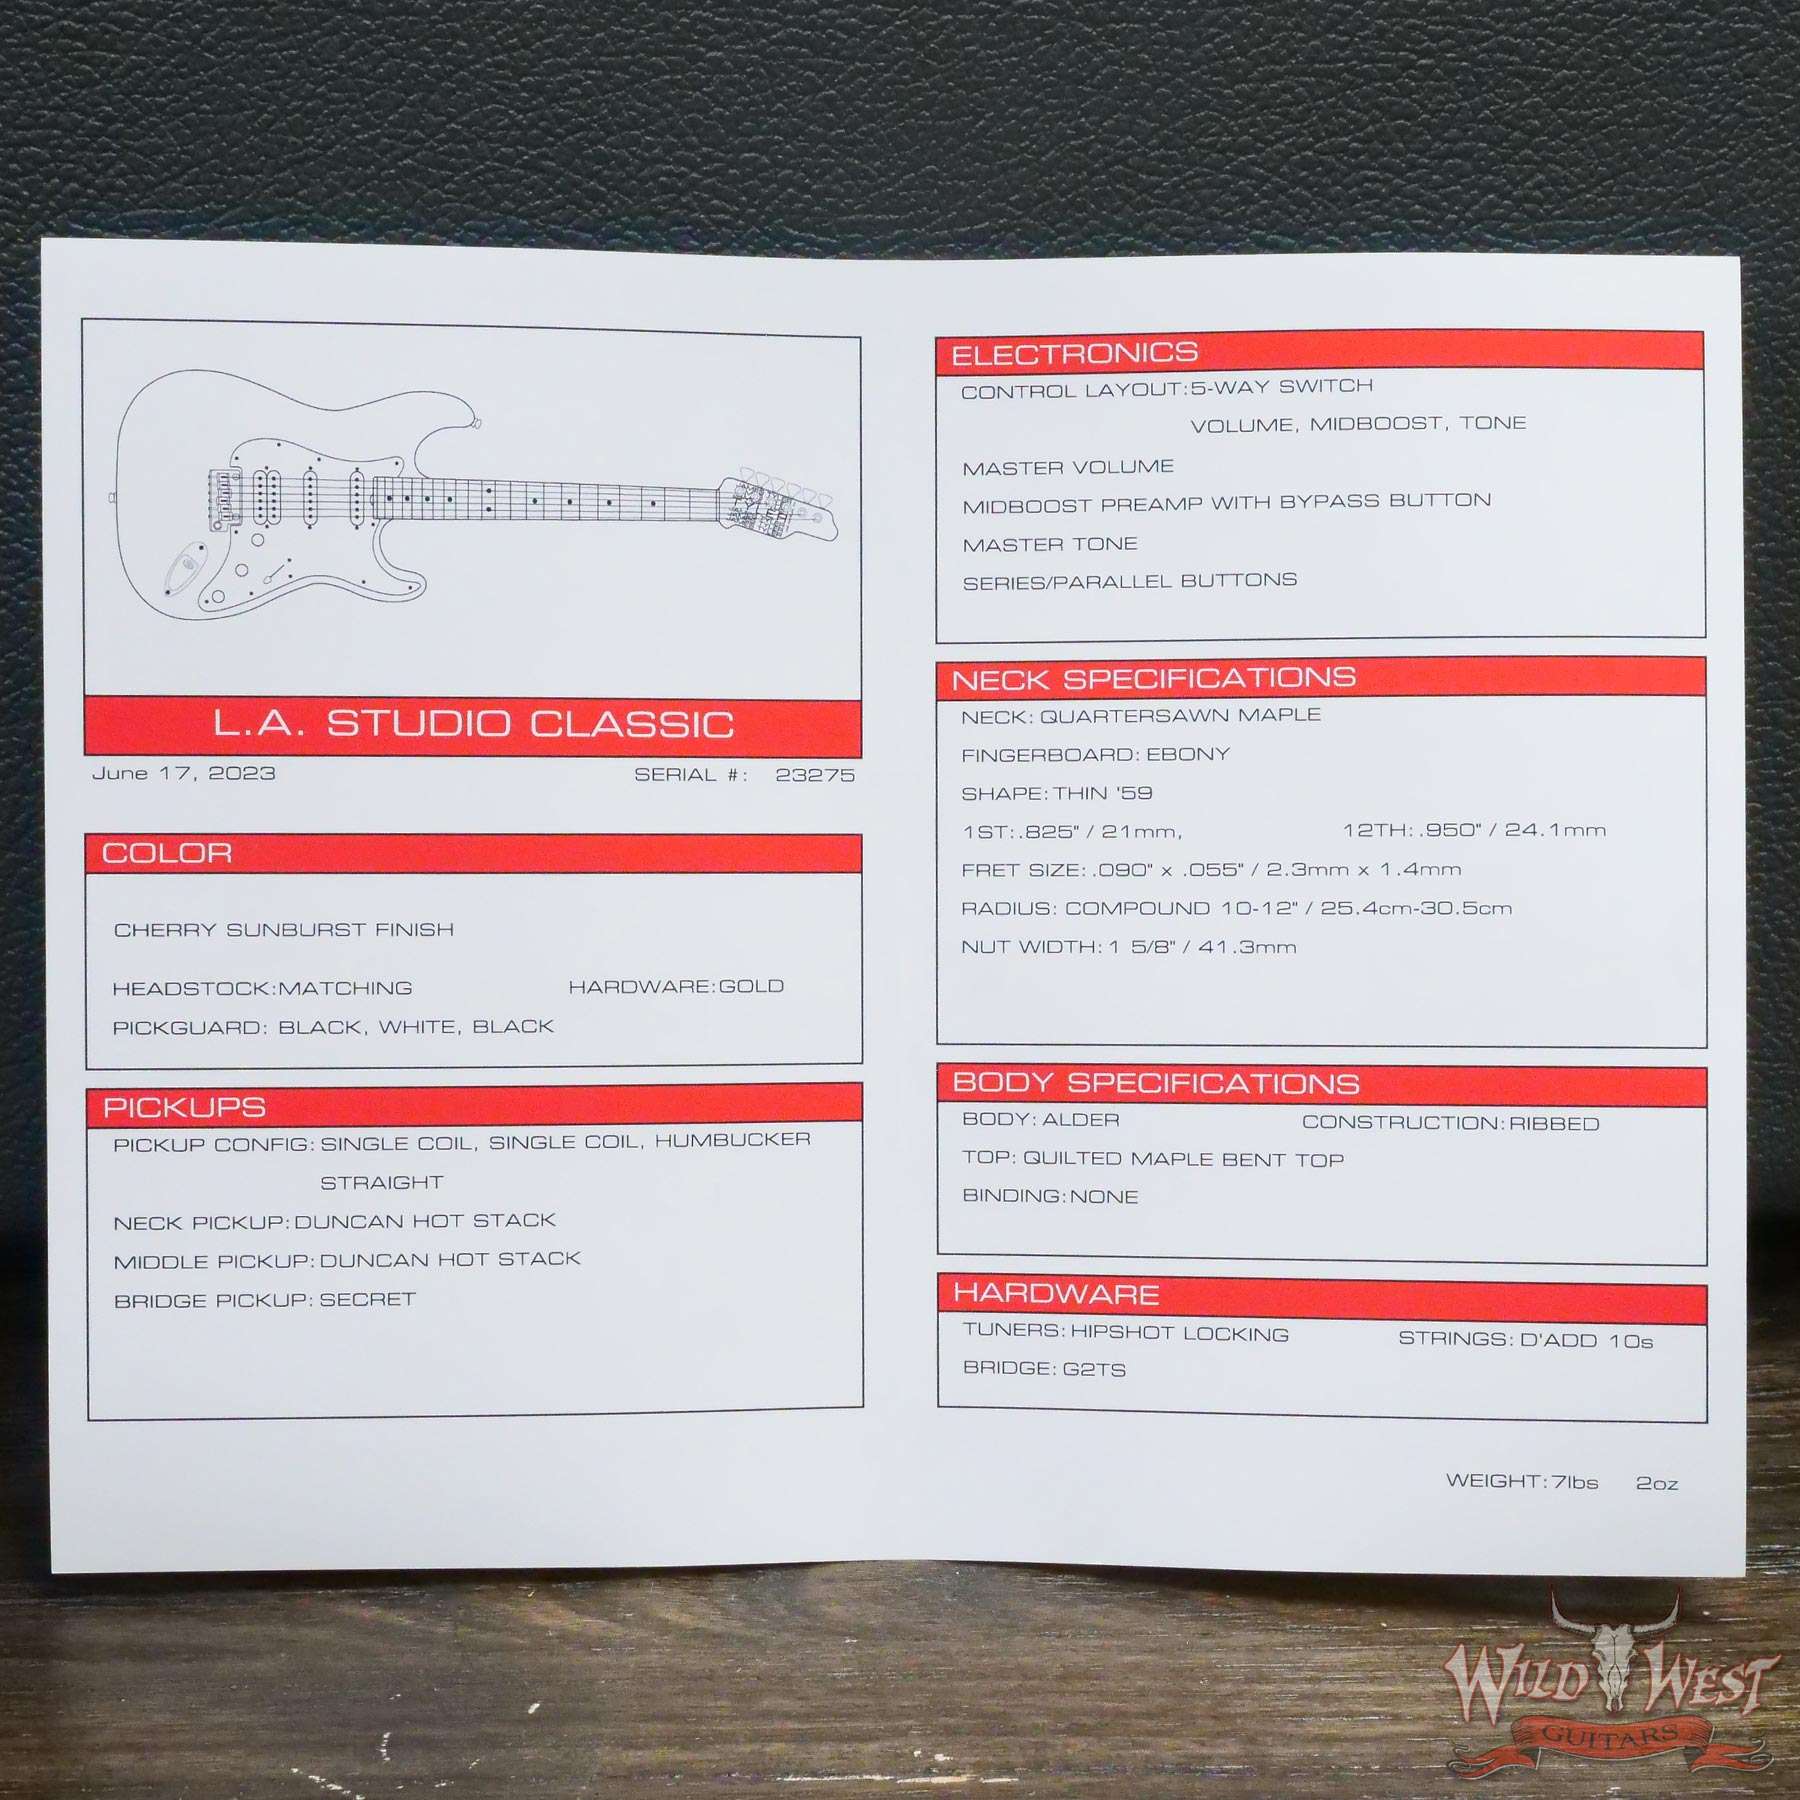 L.A. STUDIO CLASSIC
June 17, 2023 SERIAL #: 23275
COLOR
CHERRY SUNBURST FINISH
HEADSTOCK:MATCHING HARDWARE:GOLD
PICKGUARD: BLACK, WHITE, BLACK
PICKUPS
PICKUP CONFIG: SINGLE COIL, SINGLE COIL, HUMBUCKER
STRAIGHT
NECK PICKUP:DUNCAN HOT STACK
MIDDLE PICKUP:DUNCAN HOT STACK
BRIDGE PICKUP: SECRET
ELECTRONICS
CONTROL LAYOUT:5-WAY SWITCH
VOLUME, MIDBOOST, TONE
MASTER VOLUME
MIDBOOST PREAMP WITH BYPASS BUTTON
MASTER TONE
SERIES/PARALLEL BUTTONS
NECK SPECIFICATIONS
NECK: QUARTERSAWN MAPLE
FINGERBOARD: EBONY
SHAPE: THIN '59
1ST:.825" / 21mm, 12TH: .950" / 24.1mm
FRET SIZE: .090" x .055" / 2.3mm x 1.4mm
RADIUS: COMPOUND 10-12" / 25.4cm-30.5cm
NUT WIDTH: 1 5/8" / 41.3mm
BODY SPECIFICATIONS
BODY: ALDER CONSTRUCTION: RIBBED
TOP: QUILTED MAPLE BENT TOP
BINDING: NONE
HARDWARE
TUNERS: HIPSHOT LOCKING STRINGS: D'ADD 10s
BRIDGE: G2TS
WEIGHT: 7lbs 2oz
WILD WEST
GUITARS